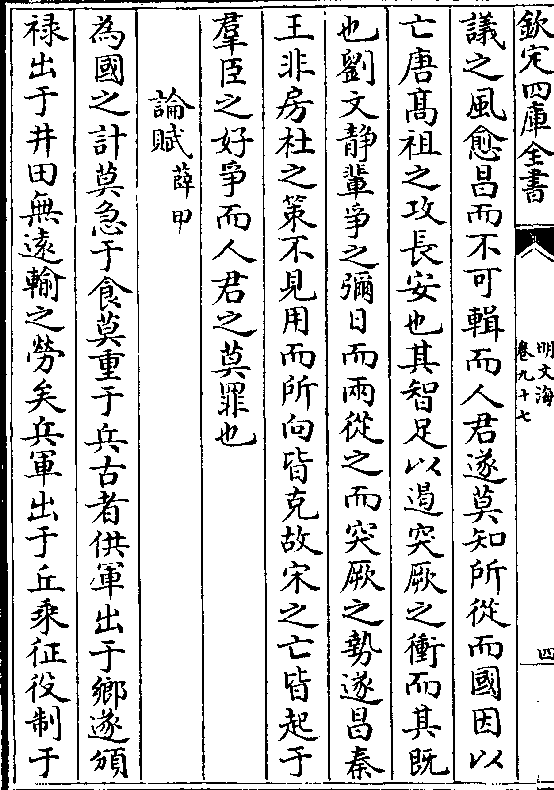 欽定四庫全書
明文海
卷九十七
四
議之風愈昌而不可輯而人君遂莫知所從而國因以
亡唐髙祖之攻長安也其智足以遏突厥之衝而其既
也劉文静輩爭之彌日而兩從之而突厥之勢遂昌秦
王非房杜之策不見用而所向皆克故宋之亡皆起于
羣臣之好爭而人君之莫罪也
論賦 薛甲
為國之計莫急于食莫重于兵古者供軍出于鄉遂頒
禄出于井田無逺輸之勞矣兵軍出于丘乘征役制于